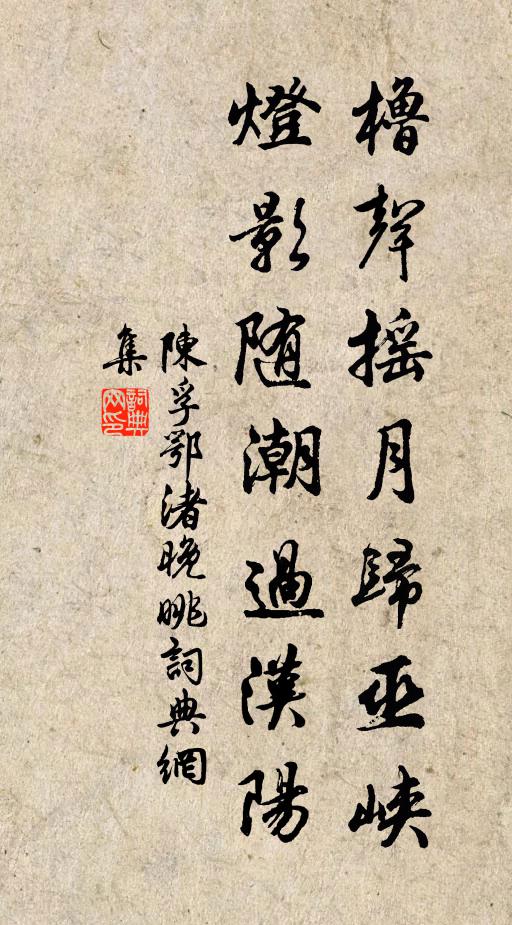 櫓聲摇月歸巫峽
燈影随潮過漢陽
陳孚鄂渚晚眺詞典網
集
詞典網印